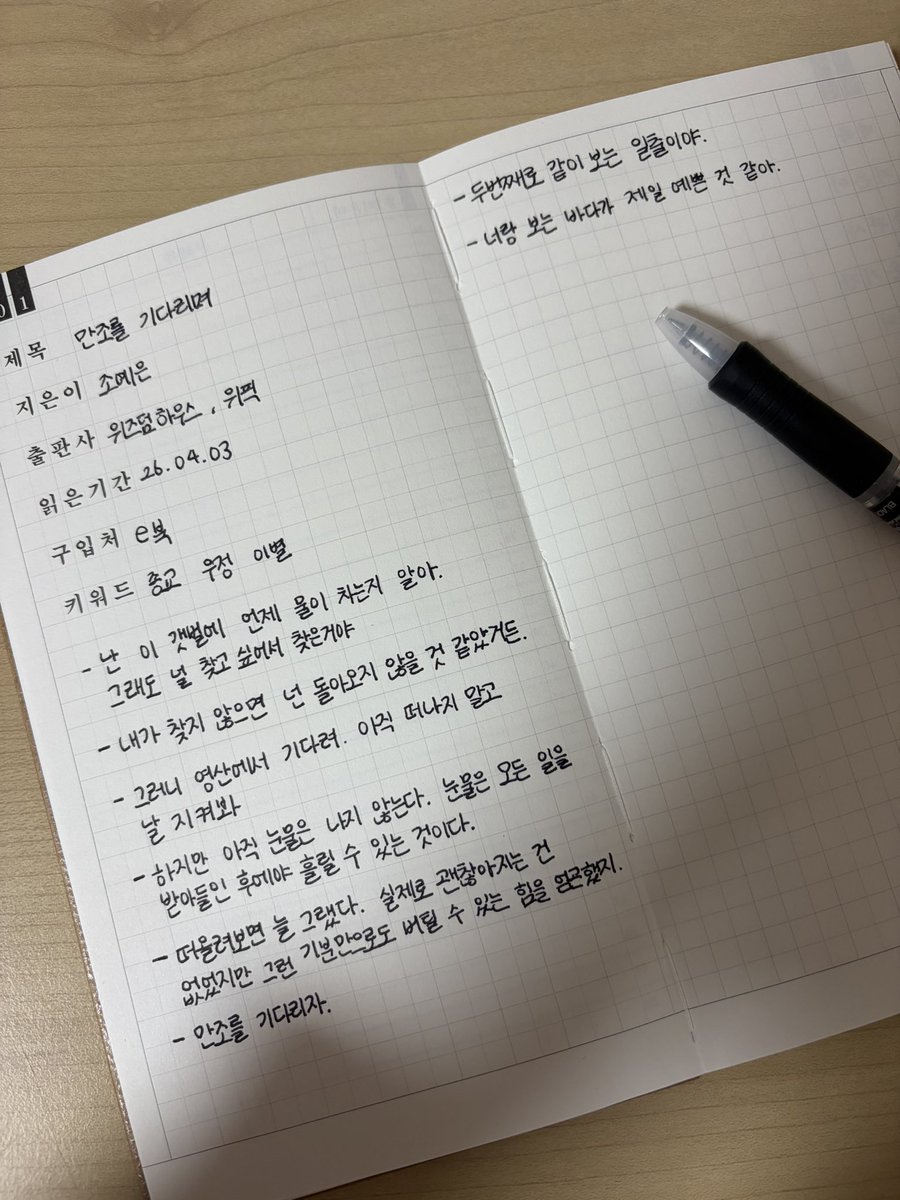 01
제목 만조를 기다리며
지은이 조예은
출판사 위즈덤하우스, 위픽
읽은기간 26.04.03
구입처 e북
키워드 종교 우정 이별
- 난 이 갯벌에 언제 물이 차는지 알아.
그래도 널 찾고 싶어서 찾은거야
- 내가 찾지 않으면 넌 돌아오지 않을 것 같았거든.
- 그러니 영산에서 기다려. 아직 떠나지 말고
날 지켜봐
- 하지만 아직 눈물은 나지 않는다. 눈물은 모든 일을
받아들인 후에야 흘릴 수 있는 것이다.
- 떠올려보면 늘 그랬다. 실제로 괜찮아지는 건
없었지만 그런 기분만으로도 버틸 수 있는 힘을 얻곤했지.
- 만조를 기다리자.
- 두번째로 같이 보는 일출이야.
- 너랑 보는 바다가 제일 예쁜 것 같아.